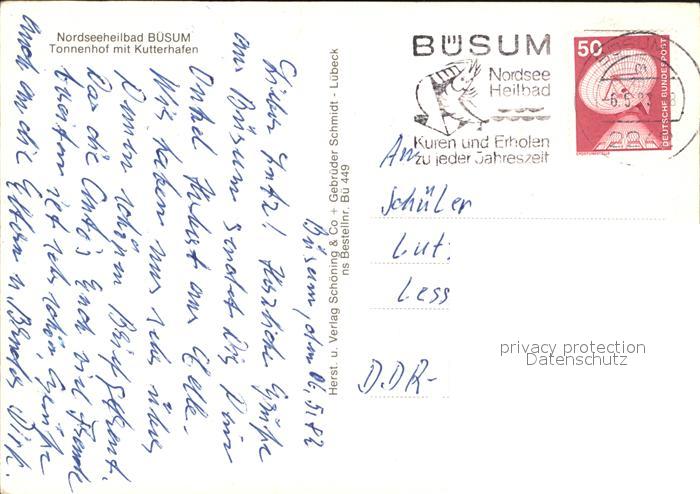 Nordseeheilbad BÜSUM
Tonnenhof mit Kutterhafen
BÜSUM
Nordsee
Heilbad
Kuren und Erholen
zu jeder Jahreszeit
50
DEUTSCHE BUNDESPOST
BÜSUM
-6.5.82
Herst. u. Verlag Schöning & Co + Gebrüder Schmidt - Lübeck
ns Bestellnr. Bü 449
Büsum, den 06.5.82
Lieber Fritz! Herzliche Grüße
aus Büsum sendet Dir Dein
Onkel Herbert aus Celle.
Wir haben uns sehr über
Deinen schönen Brief gefreut.
Das die Euch viel Freude
ist sehr schön. Grüße
auch an die Eltern u. Bruder Dirk.
An
Schüler
Lut
Less
DDR-
privacy protection
Datenschutz